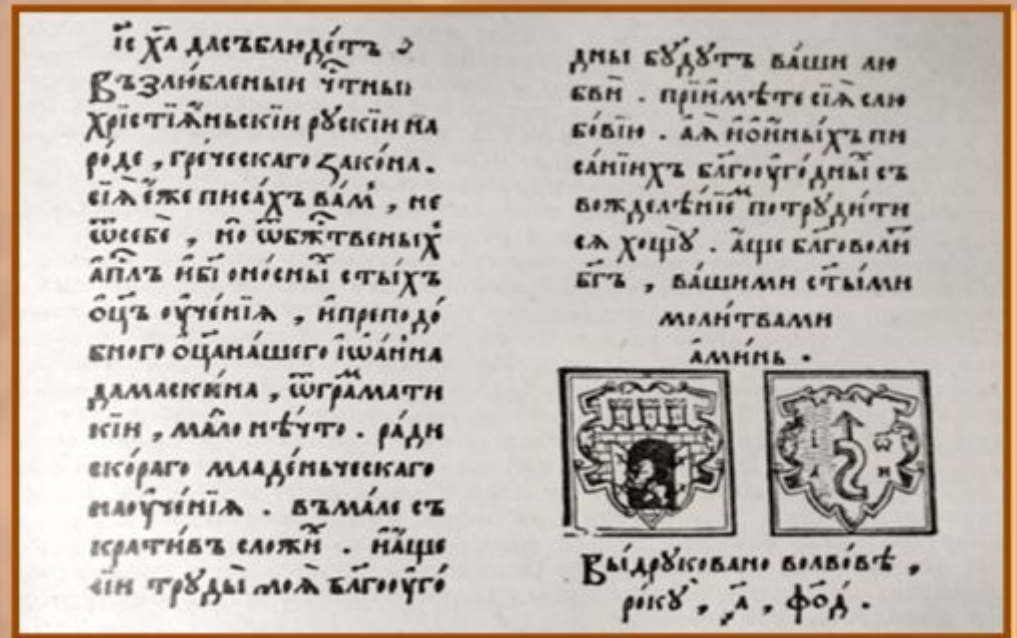 і҃с х҃а дасъблюде́тъ
Възлю́бленыи ч҃тныи
хрїстїѧ́ньскїи рꙋскїи на
ро́де , гре́ческаго зако́на .
сїѧ̀ е҆́же писа́хъ ва́м , не
ѿсебѐ , но ѿбж҃твеныхъ
а҆п҃лъ и҆бг҃оно́сны ст҃ы́хъ
о҆ц҃ъ оу҆че́нїѧ , и҆преподо́
бного о҆ц҃ана́шего і҆ѡа́нна
дамаски́на , ѿгра́мати
кїи , ма́ло нѣ́что . ра́ди
ско́раго младе́ньческаго
наоуче́нїѧ . въма́ле съ
крати́въ сложи́ . и҆а҆́ще
сїи трꙋды̀ моѧ̀ бл҃гооуго́
дны бꙋ́дꙋтъ ва́ши лю
бви́ . прїими́те сїѧ̀ слю
бо́вїю . а҆ѧ̀ и҆ои҆ны́хъ пи
са́нїихъ бл҃гооуго́дны съ
вожделѣ́нїем потрꙋди́ти
сѧ хощꙋ̀ . а҆́ще бл҃говоли́
бг҃ъ , ва́шими ст҃ы́ми
моли́твами
а҆ми́нь .
Вы́дрꙋковано волво́вѣ ,
ро́кꙋ , ҂а҃ , фо҃д .